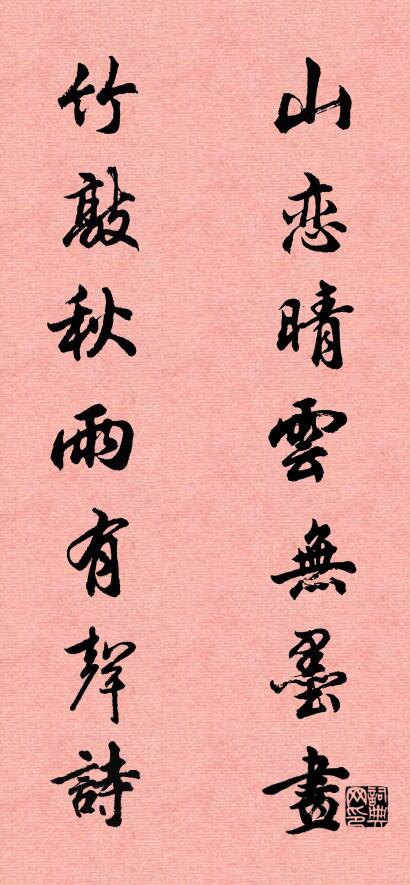 山恋晴雲無墨畫
竹敲秋雨有聲詩
詞典网印